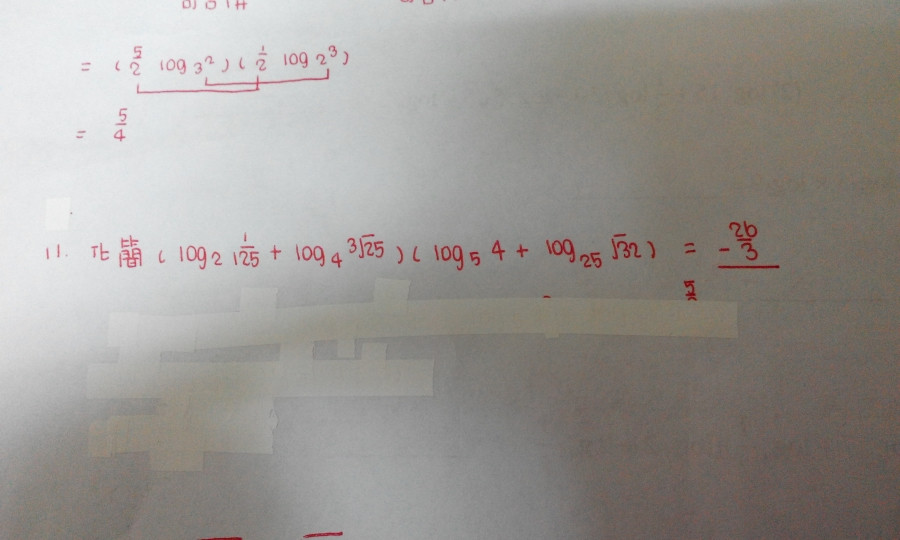 = ( 5/2 log 3² ) ( 1/2 log 2³ )
= 5/4
11. 化簡 ( log₂ 1/125 + log₄ ³√25 ) ( log₅ 4 + log₂₅ √32 ) = -26/3